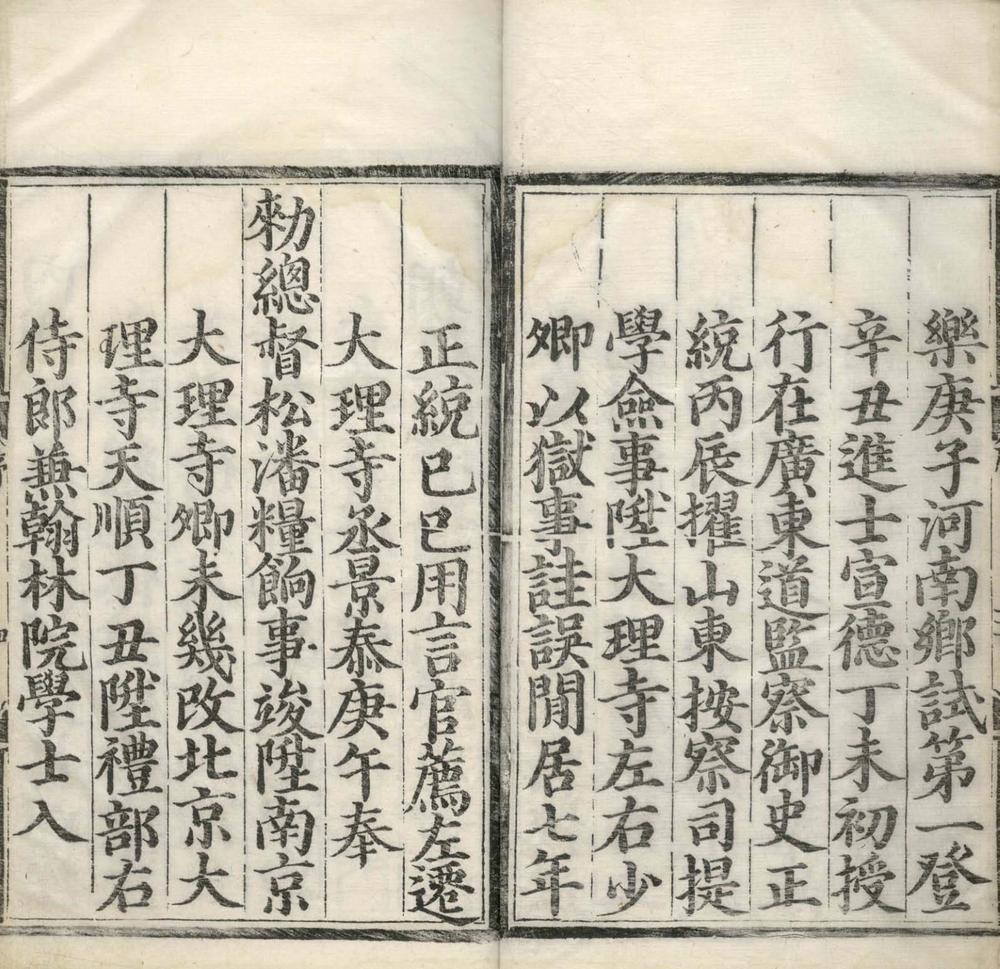 樂庚子河南鄉試第一登
辛丑進士宣德丁未初授
行在廣東道監察御史正
統丙辰擢山東按察司提
學僉事陞大理寺左右少
卿以獄事詿誤閒居七年
正統已巳用言官薦左遷
大理寺丞景泰庚午奉
勑總督松潘糧餉事竣陞南京
大理寺卿未幾改北京大
理寺天順丁丑陞禮部右
侍郎兼翰林院學士入